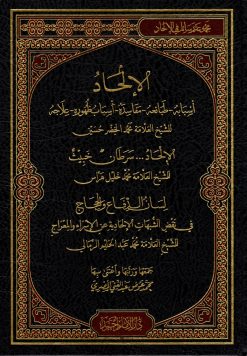 مجموعة رسائل في الإلحاد
الإلحاد
أسبابه - طبائعه - مفاسده - أسباب ظهوره - علاجه
للشيخ العلامة محمد الخضر حسين
الإلحاد... سرطان خبيث
للشيخ العلامة محمد خليل هراس
لسان الدفاع والحجاج
في نقض الشبهات الإلحادية عن الإسراء والمعراج
للشيخ العلامة محمد عبد الحليم الرمالي
جمعها ورتبها واعتنى بها